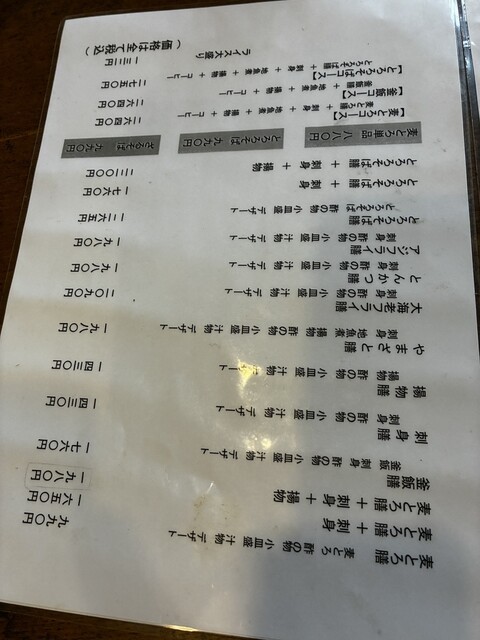 麦とろ膳 九九〇円
麦とろ 酢の物 小皿盛 汁物 デザート
麦とろ膳 + 刺身 一六五〇円
麦とろ膳 + 刺身 + 揚物 一九八〇円
釜飯膳 一七六〇円
釜飯 刺身 酢の物 小皿盛 汁物 デザート
刺身膳 一四三〇円
刺身 酢の物 小皿盛 汁物 デザート
揚物膳 一四三〇円
揚物 小皿盛 汁物 デザート
やまざと膳 一九八〇円
刺身 地魚煮 揚物 酢の物 小皿盛 汁物 デザート
大海老フライ膳 二〇九〇円
刺身 酢の物 小皿盛 汁物 デザート
とんかつ膳 一九八〇円
刺身 酢の物 小皿盛 汁物 デザート
アジフライ膳 一九八〇円
刺身 酢の物 小皿盛 汁物 デザート
とろろそば膳 一二六五円
とろろそば 酢の物 小皿盛 デザート
とろろそば膳 + 刺身 一七六〇円
とろろそば膳 + 刺身 + 揚物 二三〇〇円
麦とろ単品 八八〇円 とろろそば 九九〇円 ざるそば 九九〇円
【麦とろコース】 二六四〇円
麦とろ膳 + 刺身 + 地魚煮 + 揚物 + コーヒー
【釜飯コース】 二七五〇円
釜飯膳 + 地魚煮 + 揚物 + コーヒー
【とろろそばコース】
とろろそば膳 + 刺身 + 地魚煮 + 揚物 + コーヒー
ライス大盛り
(価格は全て税込)